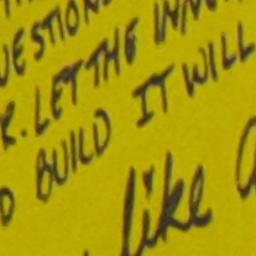 UESTION
R. LET THE INN
D BUILD IT WILL
like a